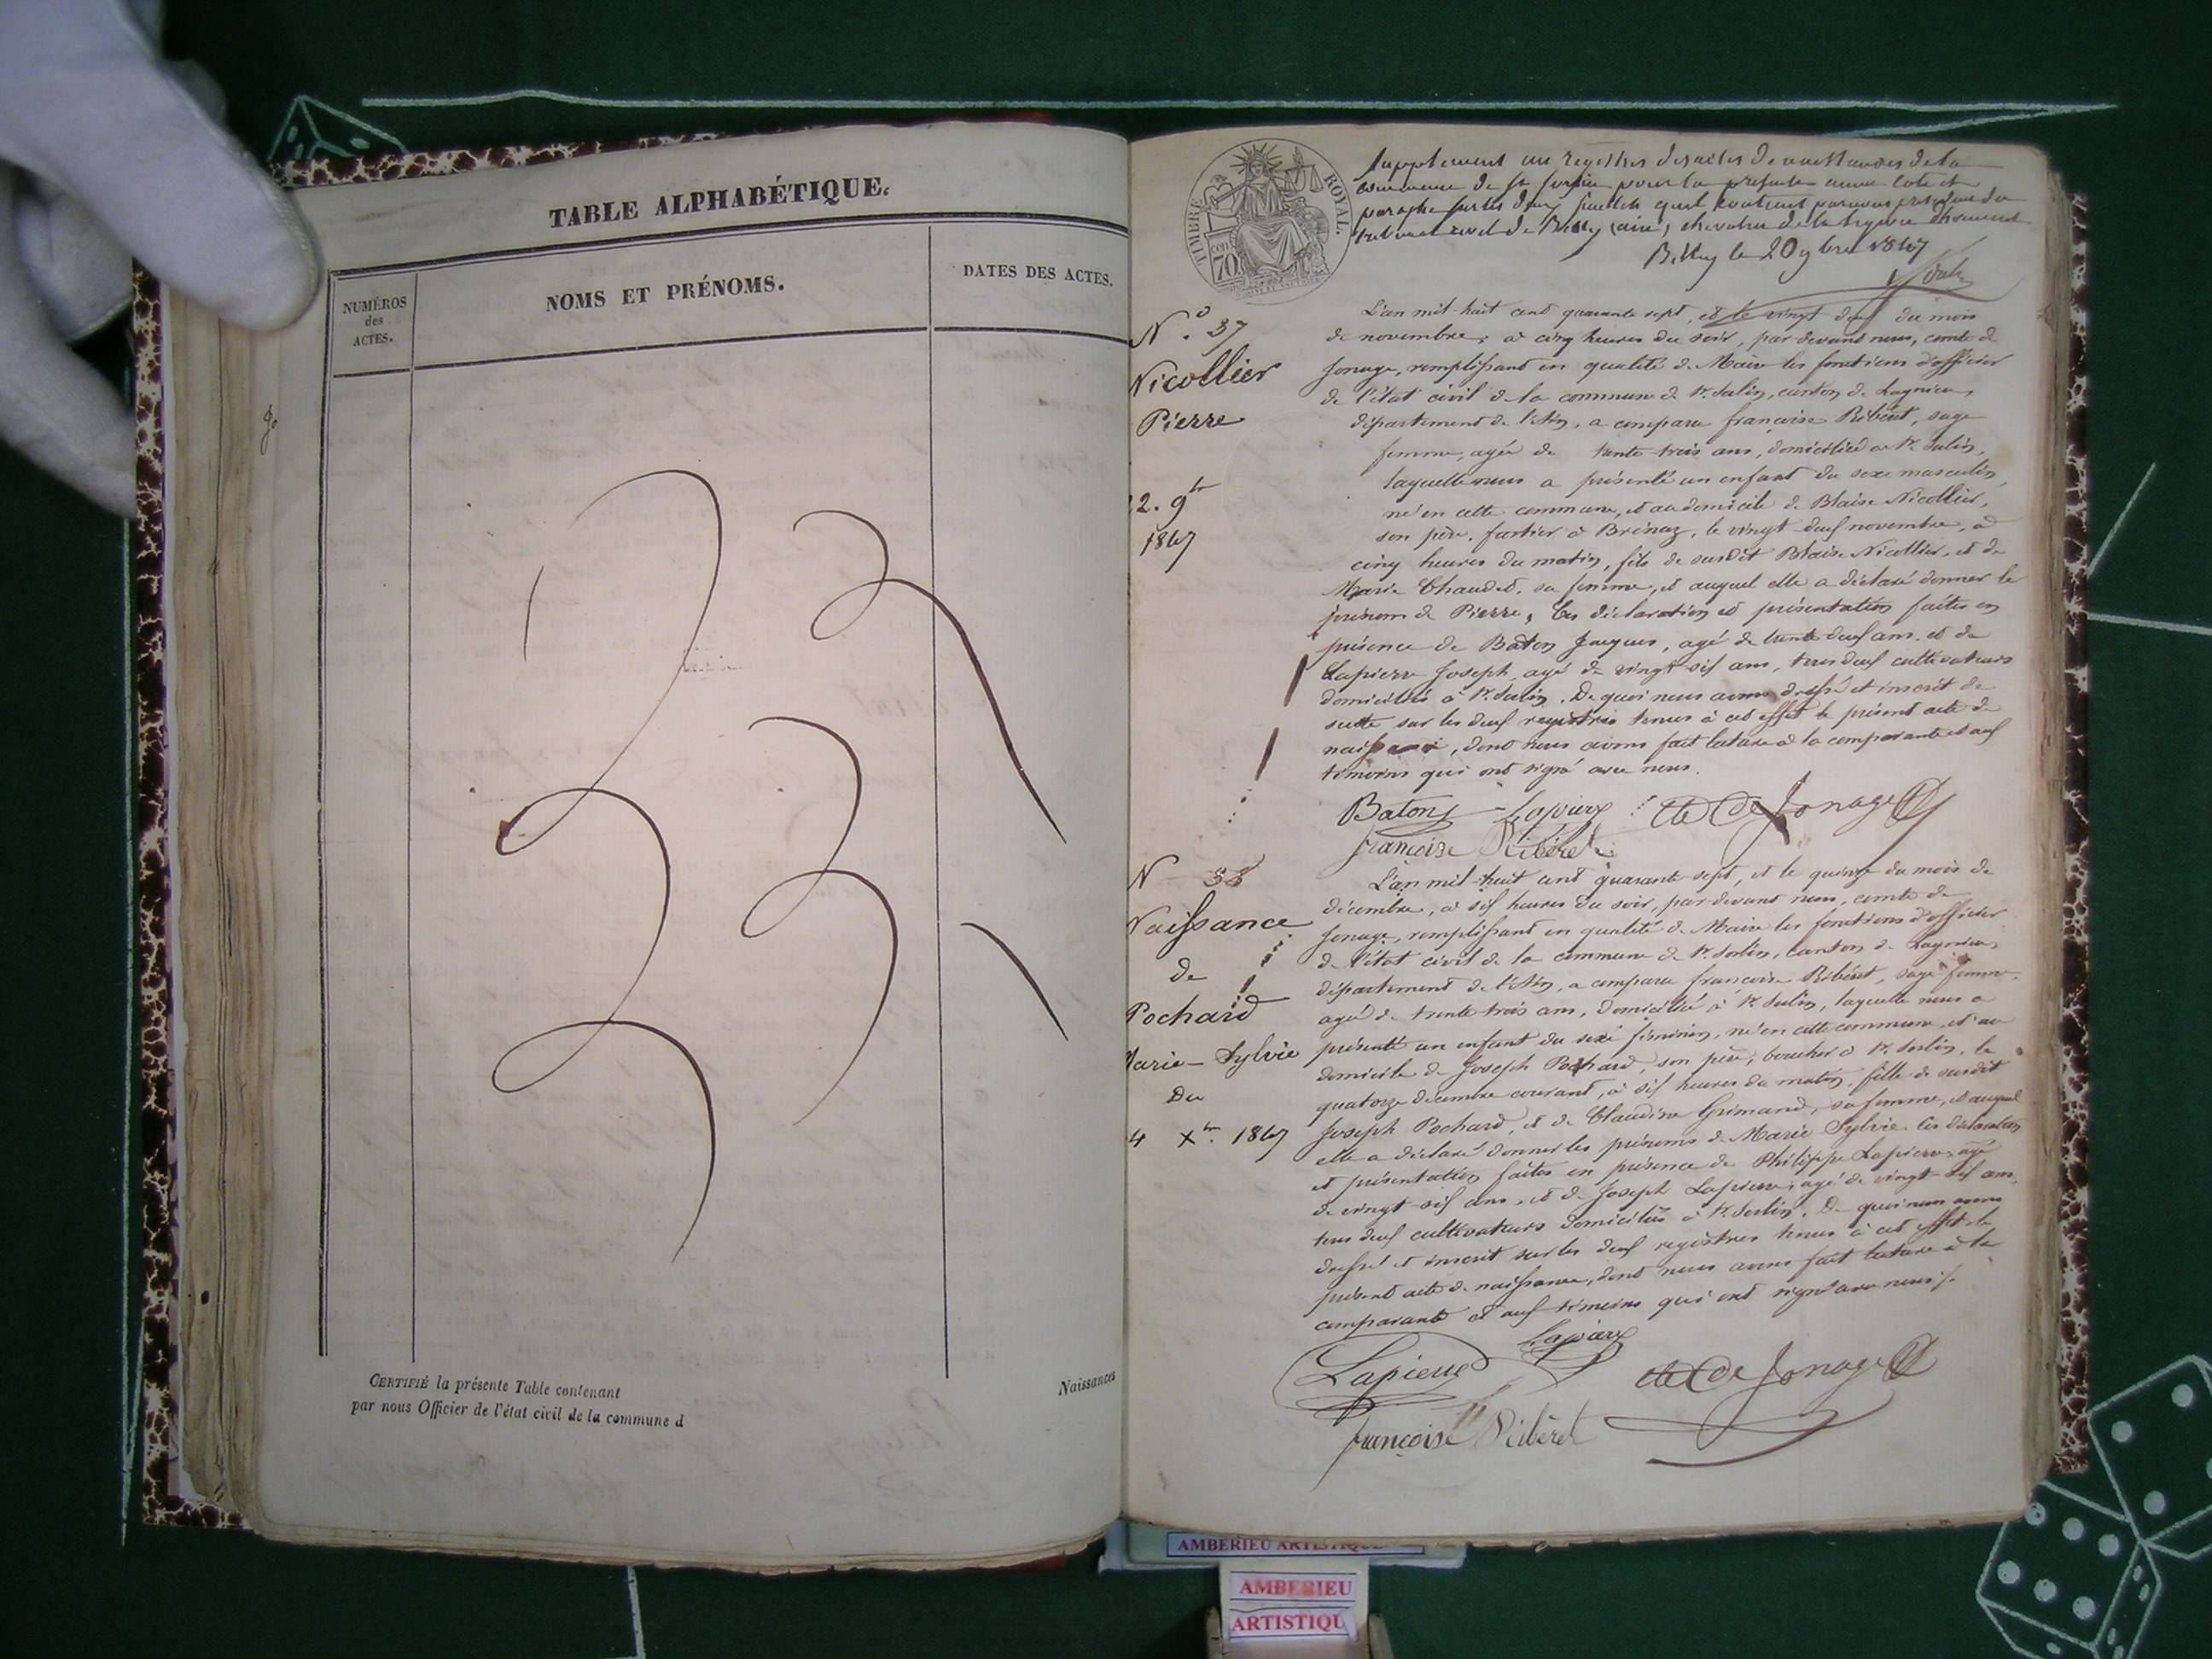 TABLE ALPHABÉTIQUE.
NUMÉROS
des
ACTES.
NOMS ET PRÉNOMS.
DATES DES ACTES.
CERTIFIÉ la présente Table contenant
par nous Officier de l'état civil de la commune d
Naissances
TIMBRE ROYAL.
70
Supplement au registre des actes de naissances de la
commune de St Sorlin pour la présente année coté et
paraphé
tribunal civil de Belley (ain) chevalier de la légion d'honneur
Belley le 20 9bre 1847
N.° 37
Nicollier
Pierre
22. 9bre
1847
L'an mil huit cent quarante sept, et le vingt deux du mois
de novembre, à cinq heures du soir, par devant nous, comte de
Jonage, remplissant en qualité de Maire les fonctions d'officier
de l'état civil de la commune de St. Sorlin, canton de Lagnieu,
département de l'Ain, a comparu françoise Ribéret, sage
femme, agée de trente trois ans, domiciliée à St. Sorlin,
laquelle nous a présenté un enfant du sexe masculin,
né en cette commune, et au domicile de Blaise Nicollier,
son père, à Brénaz, le vingt deux novembre, à
cinq heures du matin, fils de susdit Blaise Nicollier, et de
Marie Chaudet, sa femme, et auquel elle a déclaré donner le
prénom de Pierre, les déclaration et présentation faites en
présence de Baton Jacques, agé de trente deux ans, et de
Lapierre Joseph, agé de vingt six ans, tous deux cultivateurs
domiciliés à St. Sorlin. De quoi nous avons dressé et inscrit de
suite sur les deux registres tenus à cet effet le présent acte de
naissance, dont nous avons fait lecture à la comparante et aux
témoins qui ont signé avec nous.
Baton Lapierre cte de Jonage
françoise Ribéret
N 38
Naissance
de
Pochard
Marie-Sylvie
Du
14 Xbre 1847
L'an mil huit cent quarante sept, et le quinze du mois de
décembre, à six heures du soir, par devant nous, comte de
Jonage, remplissant en qualité de Maire les fonctions d'officier
de l'état civil de la commune de St. Sorlin, canton de Lagnieu,
département de l'Ain, a comparu francoise Ribéret, sage femme,
agée de trente trois ans, domiciliée à St. Sorlin, laquelle nous a
présenté un enfant du sexe féminin, né en cette commune, et au
domicile de Joseph Pochard, son père, boucher à St. Sorlin, le
quatorze décembre courant, à six heures du matin, fille de susdit
Joseph Pochard, et de Claudine Grimand, sa femme, et auquel
elle a déclaré donner les prénoms de Marie Sylvie. les déclaration
et présentation faites en présence de Philippe Lapierre, agé
de vingt six ans, et de Joseph Lapierre, agé de vingt six ans,
tous deux cultivateurs domiciliés à St. Sorlin. De quoi nous avons
dressé et inscrit sur les deux registres tenus à cet effet le
présent acte de naissance, dont nous avons fait lecture à la
comparante et aux témoins qui ont signé avec nous.
Lapierre Lapierre cte de Jonage
françoise Ribéret
AMBERIEU ARTISTIQUE
AMBERIEU
ARTISTIQU